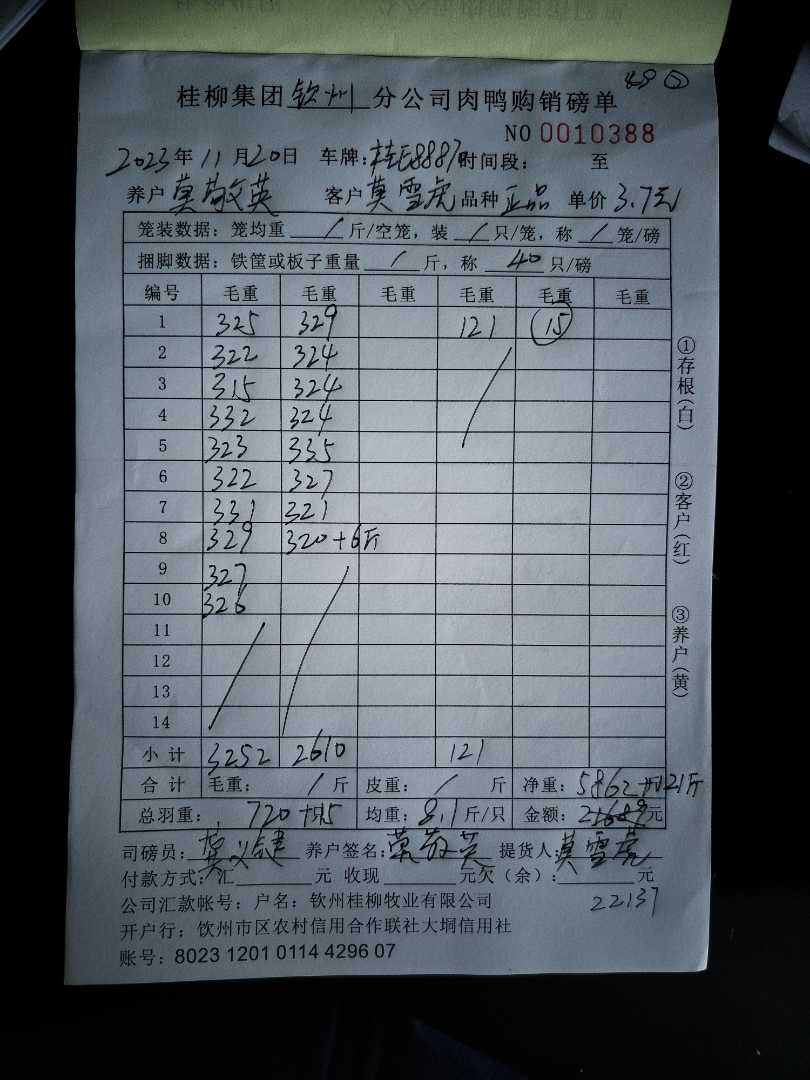 49 ②
桂柳集团 钦州 分公司肉鸭购销磅单
NO 0010388
2023年11月20日 车牌:桂E88870 时间段: 至
养户 莫敬英 客户 莫雪虎 品种 正品 单价 3.7元
笼装数据: 笼均重 / 斤/空笼, 装 / 只/笼, 称 / 笼/磅
捆脚数据: 铁筐或板子重量 / 斤, 称 40 只/磅
编号 毛重 毛重 毛重 毛重 毛重 毛重
1 325 329 121 15
2 322 324
3 315 324
4 332 324
5 323 335
6 322 327
7 331 321
8 329 320+6斤
9 327
10 326
11
12
13
14
小计 3252 2610 121
合计 毛重: / 斤 皮重: / 斤 净重: 5862+121斤
总羽重: 720+15 均重: 8.1斤/只 金额: 21689元
司磅员: 养户签名: 莫敬英 提货人: 莫雪虎
付款方式: 汇 元 收现 元欠(余): 元
公司汇款帐号: 户名: 钦州桂柳牧业有限公司
22137
开户行: 钦州市区农村信用合作联社大垌信用社
账号: 8023 1201 0114 4296 07
①存根(白)
②客户(红)
③养户(黄)